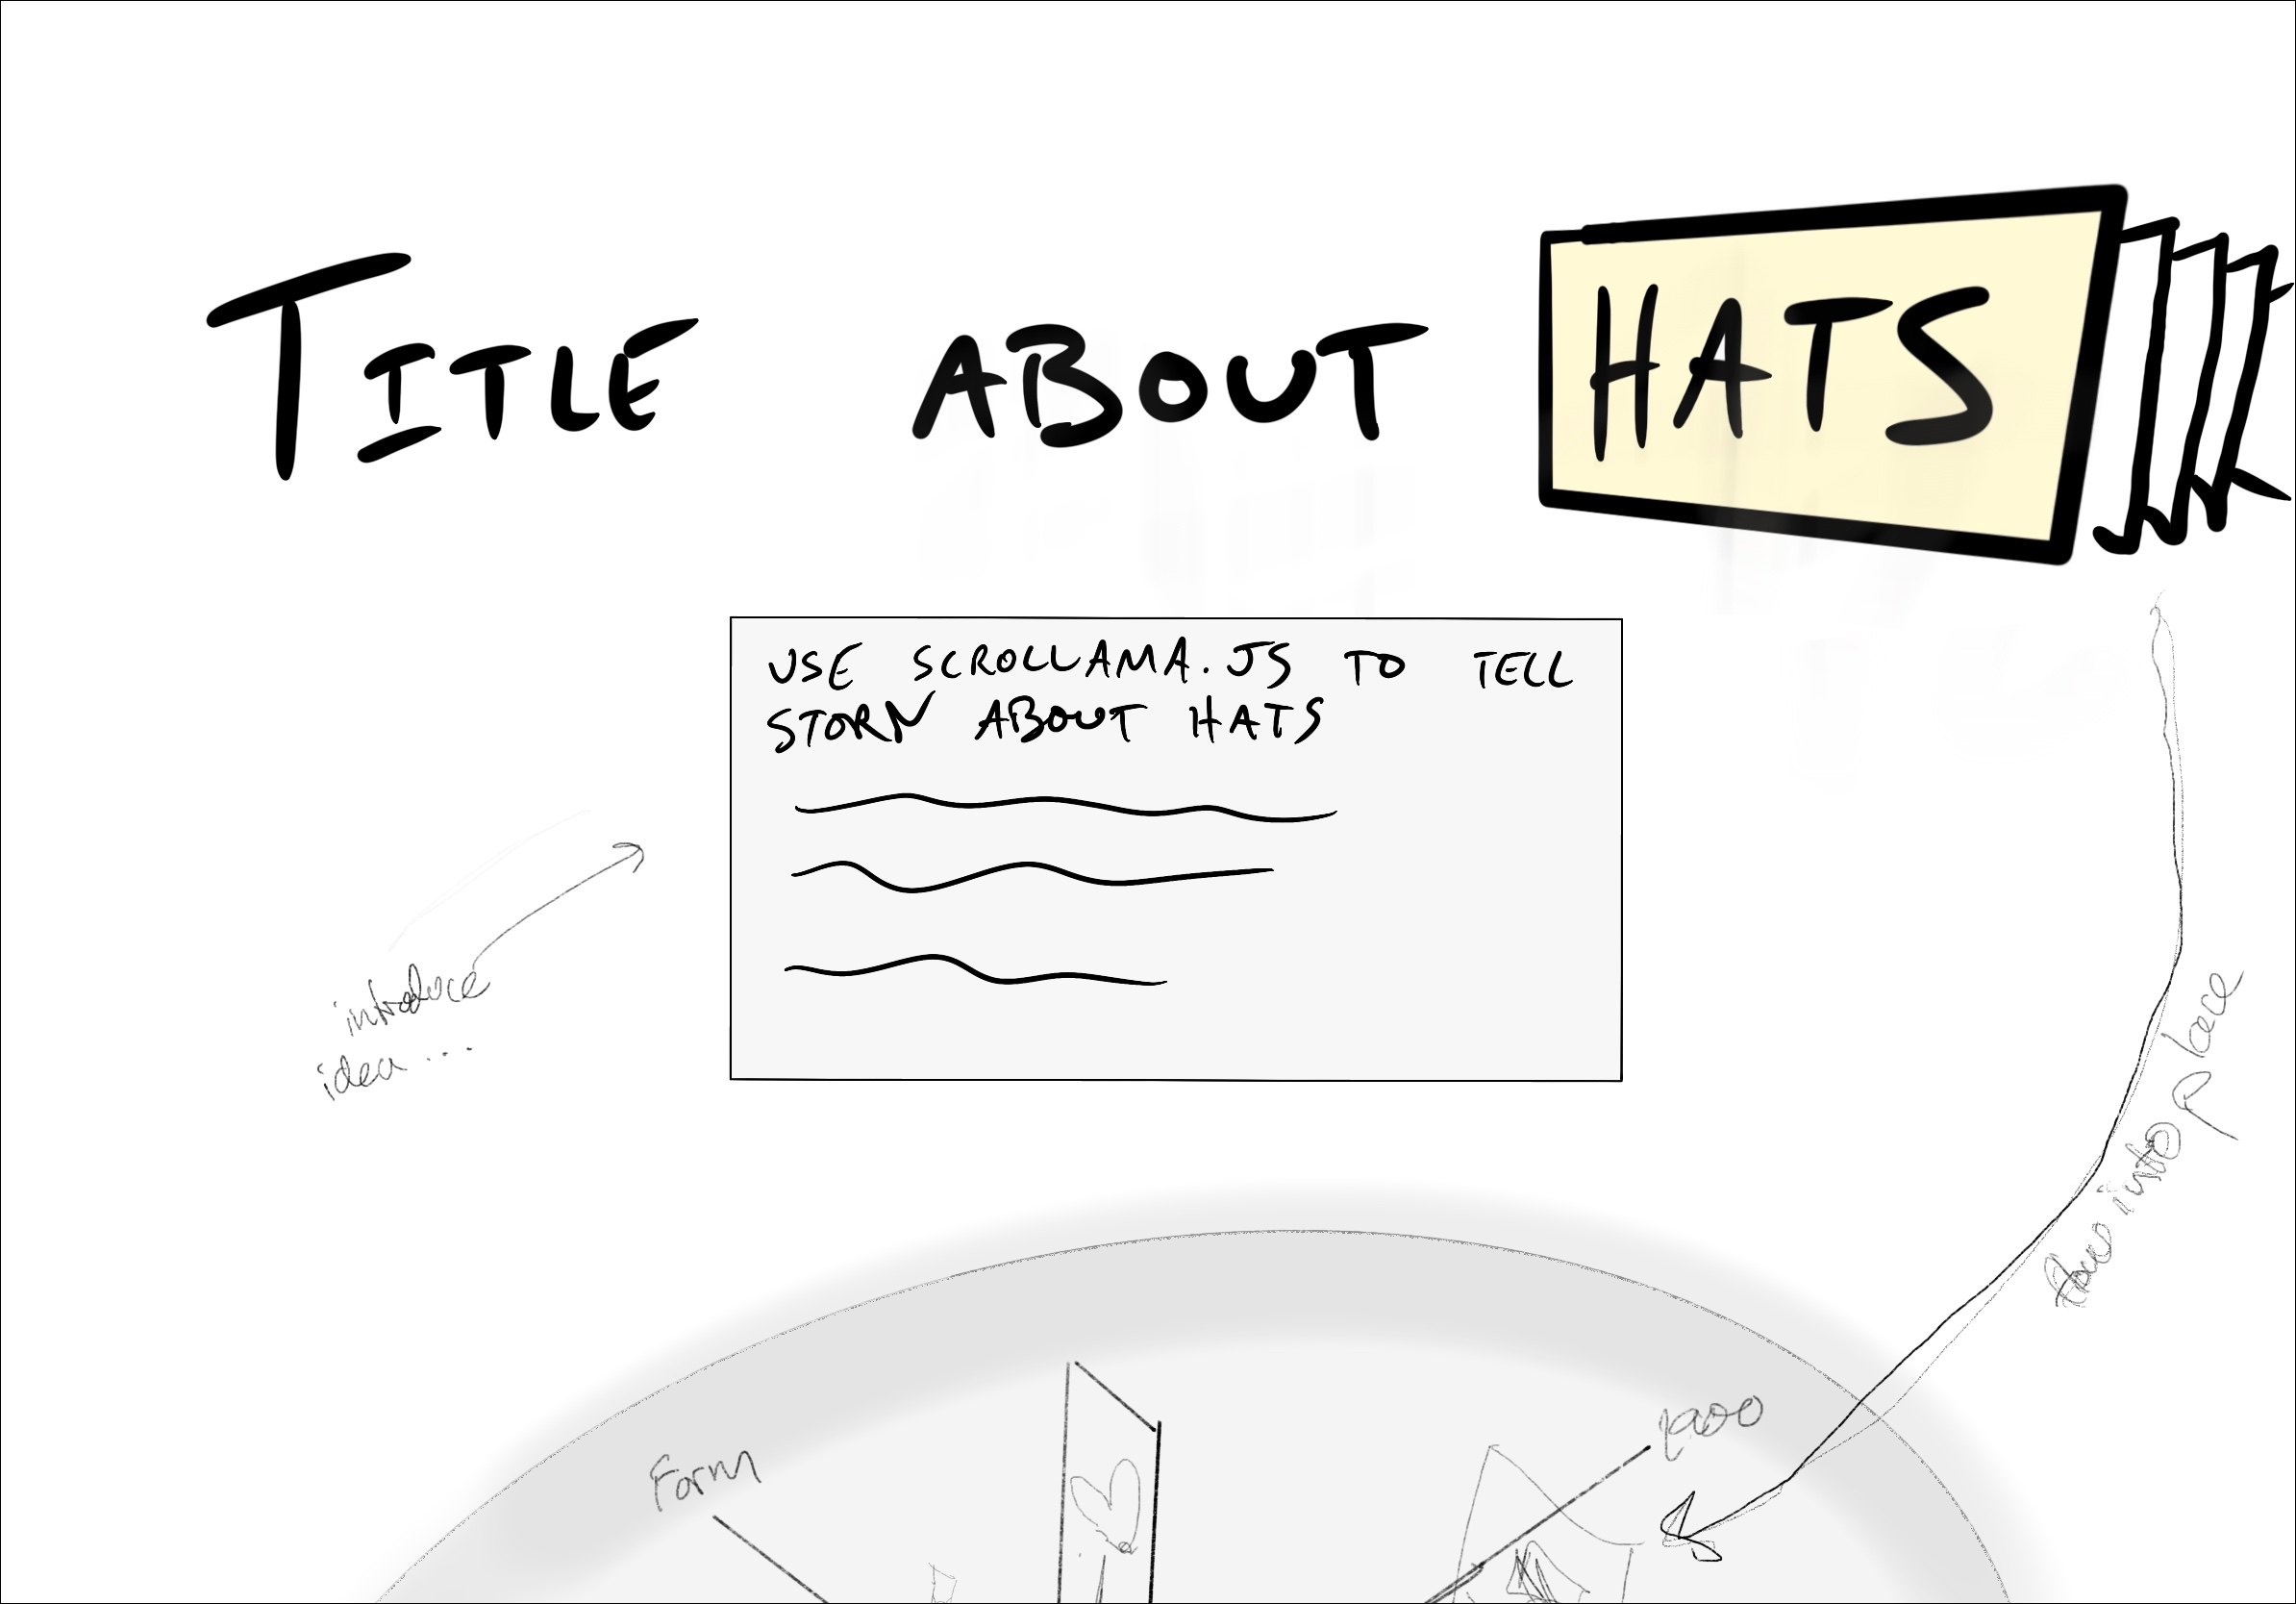 TITLE ABOUT HATS
USE SCROLLAMA.JS TO TELL
STORY ABOUT HATS
introduce
idea ...
flow into place
Form